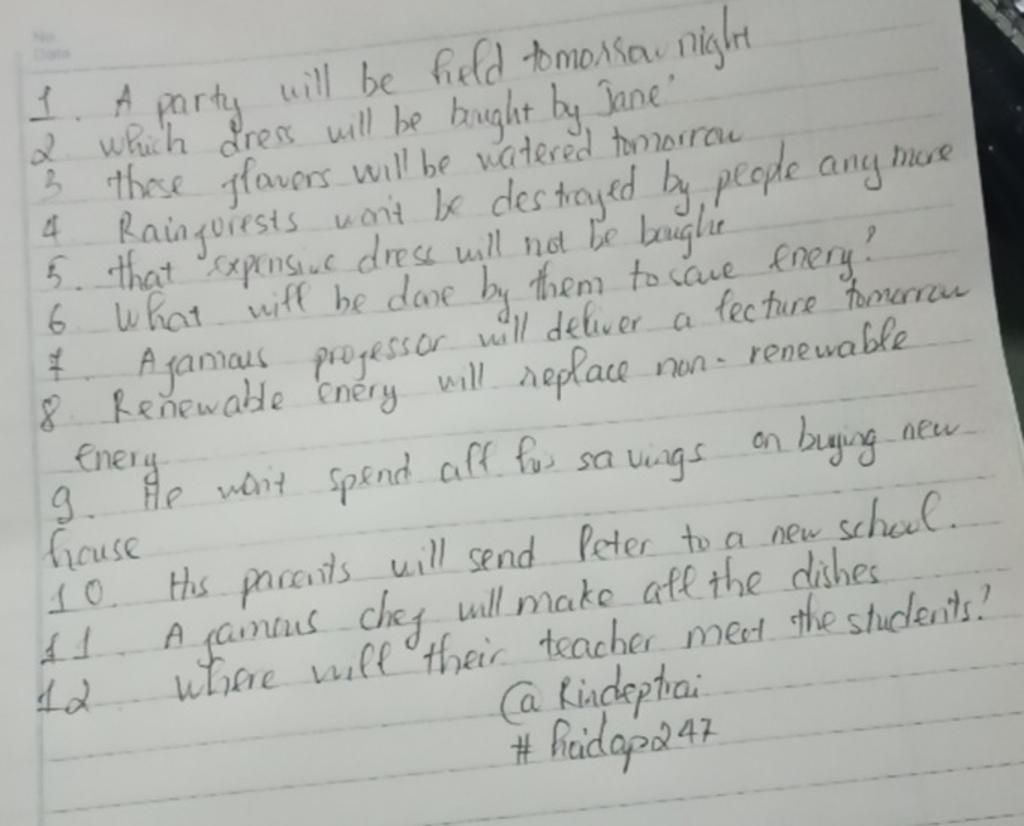 No.
Date
1. A party will be held tomorrow night
2 which dress will be bought by Jane
3 those flowers will be watered tomorrow
4 Rainforests won't be destroyed by people any more
5. that expensive dress will not be bought
6 What will be done by them to save enery?
7. A famous professor will deliver a lecture tomorrow
8 Renewable enery will replace non-renewable
enery
9. He won't spend all his savings on buying new
house
10. His parents will send Peter to a new school.
11. A famous chef will make all the dishes
12 where will their teacher meet the students?
@ Rindeptrai
# hoidap247